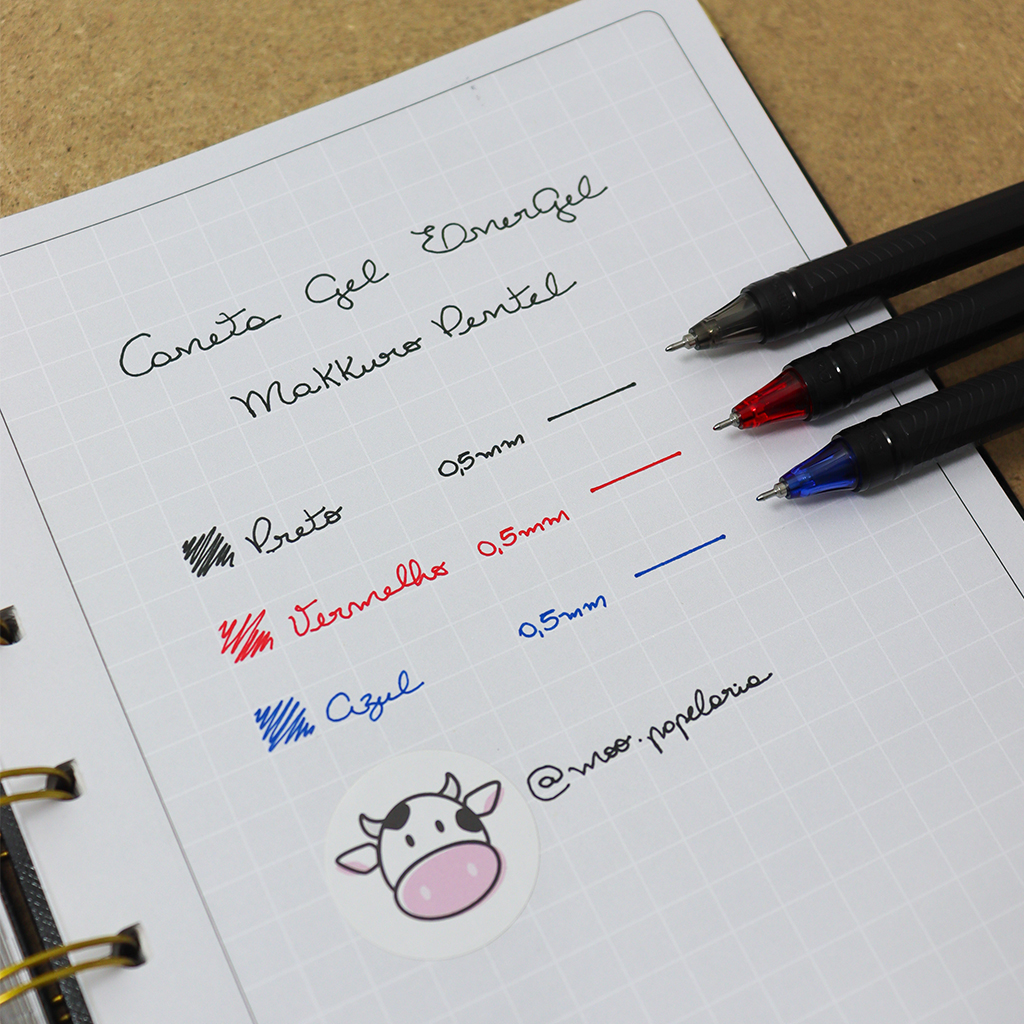 Caneta Gel EDnerGel
Makkuro Pentel
Preto 0,5mm
Vermelho 0,5mm
Azul 0,5mm
@moo.papelaria